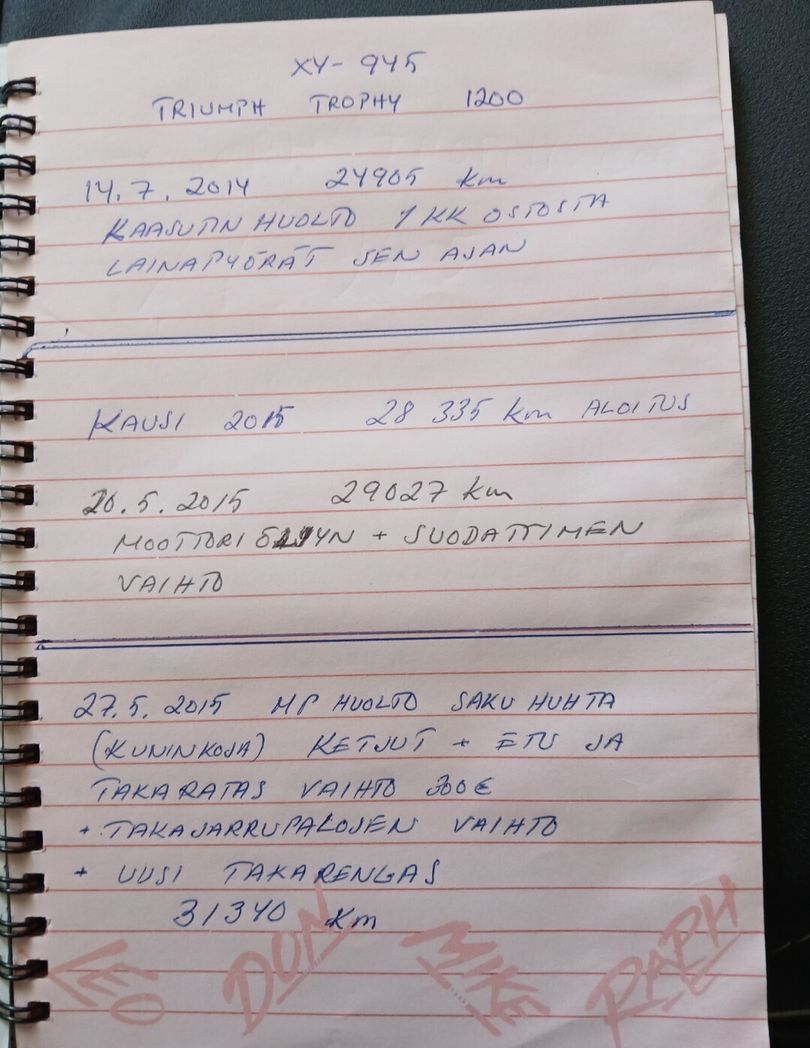 XY- 945
TRIUMPH TROPHY 1200
14.7.2014 24905 km
KAASUTIN HUOLTO 1 KK OSTOSTA
LAINAPYÖRÄT SEN AJAN
KAUSI 2015 28 335 km ALOITUS
20.5.2015 29027 km
MOOTTORIÖLJYN + SUODATTIMEN
VAIHTO
27.5.2015 MP HUOLTO SAKU HUHTA
(KUNINKOJA) KETJUT + ETU JA
TAKARATAS VAIHTO 300€
+ TAKAJARRUPALOJEN VAIHTO
+ UUSI TAKARENGAS
31340 km
LEO DON MIKE RAPH